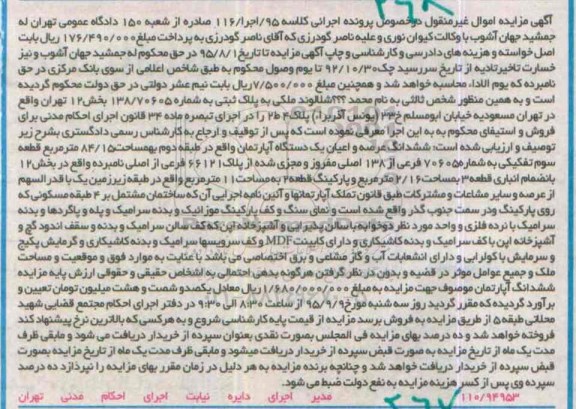 آگهی مزایده اموال غیرمنقول درخصوص پرونده اجرائی کلاسه 95/اجرا/116 صادره از شعبه 150 دادگاه عمومی تهران له
جمشید جهان آشوب با وکالت کیوان نوری و علیه ناصر گودرزی که آقای ناصر گودرزی به پرداخت مبلغ 176/490/000 ریال بابت
اصل خواسته و هزینه های دادرسی و کارشناسی و چاپ آگهی مزایده تا تاریخ 95/8/1 در حق محکوم له جمشید جهان آشوب و نیز
خسارت تاخیرتادیه از تاریخ سررسید چک 92/10/30 تا یوم وصول محکوم به طبق شاخص اعلامی از سوی بانک مرکزی در حق
نامبرده که یوم الاداء، محاسبه خواهد شد و همچنین مبلغ 7/500/000 ریال بابت نیم عشر دولتی در حق دولت محکوم گردیده
است و به همین منظور شخص ثالثی به نام محمد ؟؟؟شالوند ملکی به پلاک ثبتی به شماره 138/70605 بخش 12 تهران واقع
در تهران مسعودیه خیابان ابومسلم خ 34 (یونس آذربرا) پلاک 4 ط 2 را در اجرای تبصره ماده 34 قانون اجرای احکام مدنی برای
فروش و استیفای محکوم به به این اجرا معرفی نموده است که پس از توقیف و ارجاع به کارشناس رسمی دادگستری بشرح زیر
توصیف و ارزیابی شده است: ششدانگ عرصه و اعیان یک دستگاه آپارتمان واقع در طبقه دوم بهمساحت 84/15 مترمربع قطعه
سوم تفکیکی به شماره 70605 فرعی از 138 اصلی مفروز و مجزی شده از پلاک 66121 فرعی از اصلی نامبرده واقع در بخش 12
بانضمام انباری قطعه 3 بمساحت 2/16 مترمربع و پارکینگ قطعه 2 به مساحت 11 مترمربع واقع در طبقه زیرزمین یک با قدر السهم
از عرصه و سایر مشاعات و مشترکات طبق قانون تملک آپارتمانها و آئین نامه اجرایی آن که ساختمان مشتمل بر 4 طبقه مسکونی که
روی پارکینگ ودر سمت جنوب گذر واقع شده است و نمای سنگ و کف پارکینگ موزائیک و بدنه سرامیک و پله و پاگردها و بدنه
سرامیک با نرده فلزی و واحد مورد نظر دوخوابه با سالن پذیرایی و آشپزخانه این که کف سالن سرامیک و بدنه و سقف اندود گچ و
آشپزخانه اپن با کف سرامیک و بدنه کاشیکاری و دارای کابینت MDF و کف سرویسها سرامیک و بدنه کاشیکاری و گرمایش پکیج
و سرمایش با کولرآبی و دارای انشعابات آب و گاز مشاعی و برق اختصاصی می باشد با عنایت به موارد فوق و موقعیت و مساحت
ملک و جمیع عوامل موثر در قضیه و بدون در نظر گرفتن هرگونه بدهی احتمالی به اشخاص حقیقی و حقوقی ارزش پایه مزایده
ششدانگ آپارتمان موصوف جهت مزایده به مبلغ 1/680/000/000 ریال معادل یکصدو شصت و هشت میلیون تومان تعیین و
برآورد گردیده که مقرر گردید روز سه شنبه مورخ 95/9/9 از ساعت 8:30 الی 9:30 در دفتر اجرای احکام مجتمع قضایی شهید
محلاتی طبقه 5 از طریق مزایده به فروش برسد مزایده از قیمت پایه کارشناسی شروع و به هرکسی که بالاترین نرخ پیشنهاد کند
فروخته خواهد شد و ده درصد بهای مزایده فی المجلس بصورت نقدی بعنوان سپرده از خریدار دریافت می شود و مابقی ظرف
مدت یک ماه از تاریخ مزایده به صورت قبض سپرده از خریدار دریافت میشود و مابقی ظرف مدت یک ماه از تاریخ مزایده بصورت
قبض سپرده از خریدار دریافت خواهد شد و چنانچه برنده مزایده به هر دلیل در زمان مقرر بهای مزایده را نپردازد ده درصد
سپرده وی پس از کسر هزینه مزایده به نفع دولت ضبط می شود.
110/94953 مدیر اجرای دایره نیابت اجرای احکام مدنی تهران